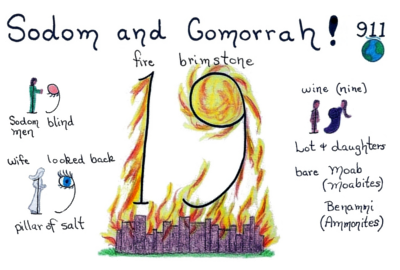 Sodom and Gomorrah! 911
fire brimstone
19
Sodom blind
men
wife looked back
pillar of salt
wine (nine)
Lot + daughters
bare Moab
(Moabites)
Benammi
(Ammonites)